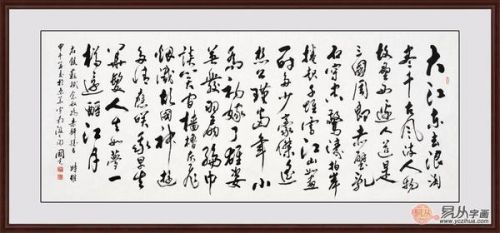 大江东去浪淘
尽千古风流人物
故垒西边人道是
三國周郎赤壁乱
石穿空惊涛拍岸
捲起千堆雪江山如畫
一时多少豪傑遥
想公瑾當年小
乔初嫁了雄姿
英發羽扇纶巾
谈笑间樯橹灰飞
烟灭故國神遊
多情應咲我早生
華髮人生如夢一
樽還酹江月
易从字画
www.yczihua.com